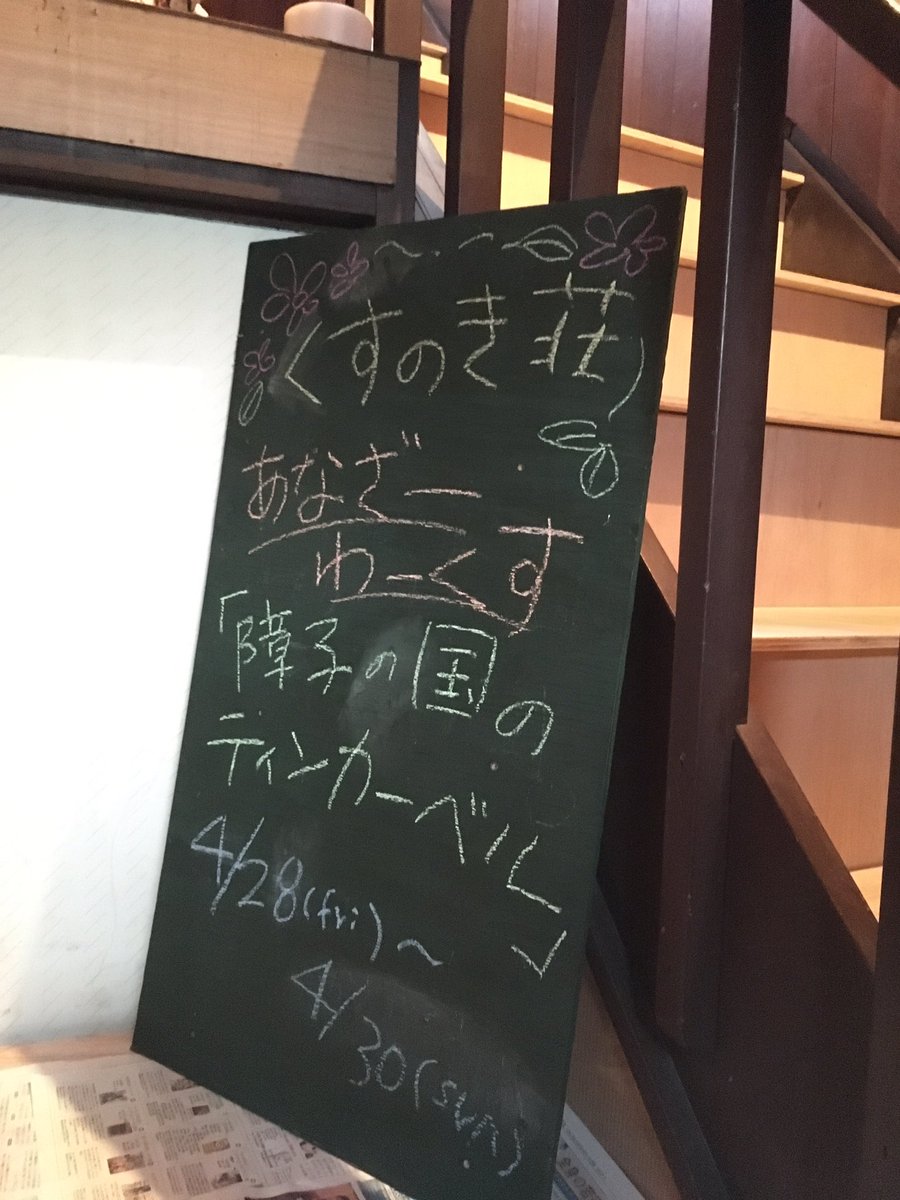 くすのき荘
あなざーわーくす
「障子の国の
ティンカーベル」
4/28(fri)～
4/30(sun)